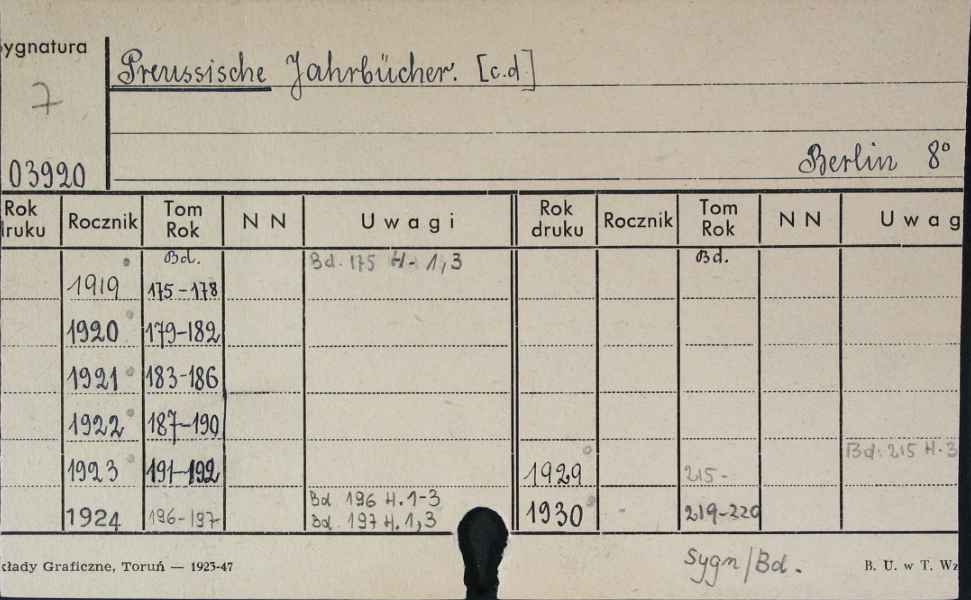 ygnatura
Preussische Jahrbücher. [c.d.]
7
Berlin 8°
03920
Rok druku Rocznik Tom Rok N N Uwagi Rok druku Rocznik Tom Rok N N Uwag
Bd. Bd. 175 H. 1,3 Bd.
1919 175-178
1920 179-182
1921 183-186
1922 187-190
Bd. 215 H. 3
1923 191-192 1929 215-
Bd. 196 H. 1-3
1924 196-197 Bd. 197 H. 1,3 1930 219-220
Sygn/Bd.
kłady Graficzne, Toruń — 1923-47 B. U. w T. Wz